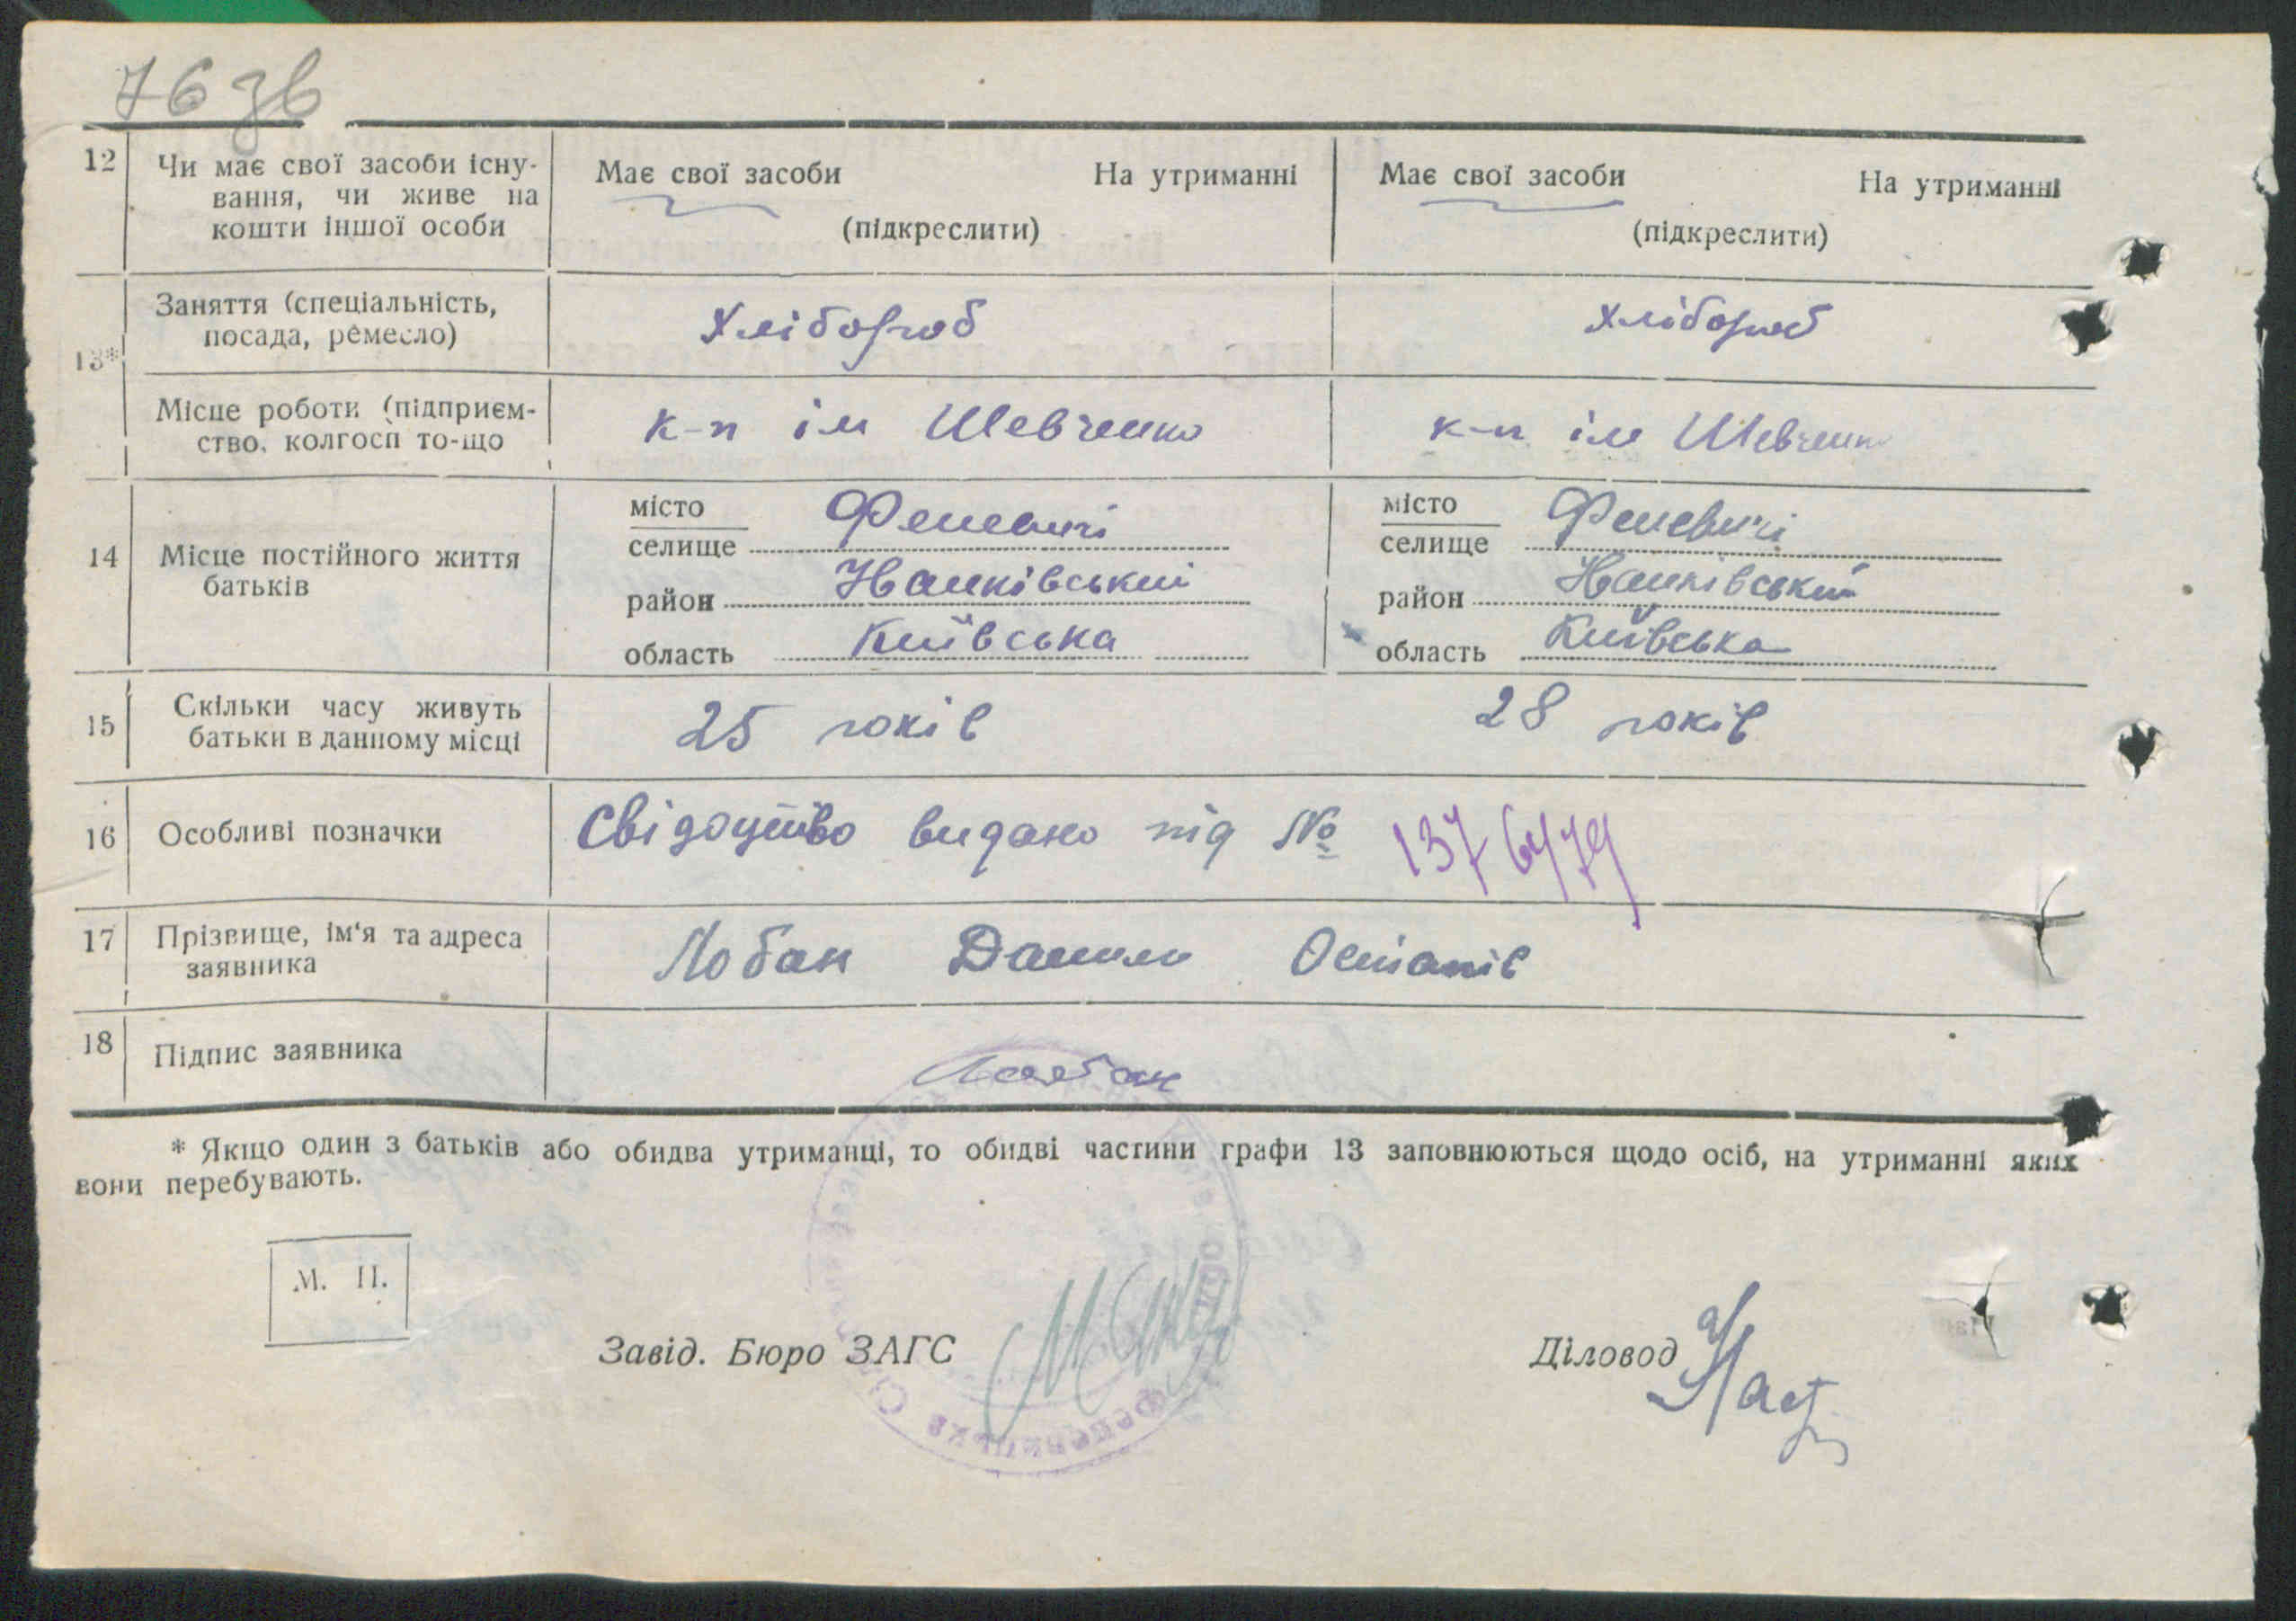 76 зв
12 Чи має свої засоби існу- Має свої засоби На утриманні Має свої засоби На утриманні
вання, чи живе на
кошти іншої особи (підкреслити) (підкреслити)
13* Заняття (спеціальність, Хлібороб Хлібороб
посада, ремесло)
Місце роботи (підприєм- к-п ім Шевченко к-п ім Шевченко
ство, колгосп то-що
14 Місце постійного життя батьків
місто Феневичі місто Феневичі
селище селище
район Іванківський район Іванківський
область Київська область Київська
15 Скільки часу живуть 25 років 28 років
батьки в данному місці
16 Особливі позначки Свідоцтво видано під №
17 Прізвище, ім'я та адреса Лобан Данило Остапів
заявника
18 Підпис заявника Лобан
* Якщо один з батьків або обидва утриманці, то обидві частини графи 13 заповнюються щодо осіб, на утриманні яких
вони перебувають.
М. П.
Завід. Бюро ЗАГС Діловод